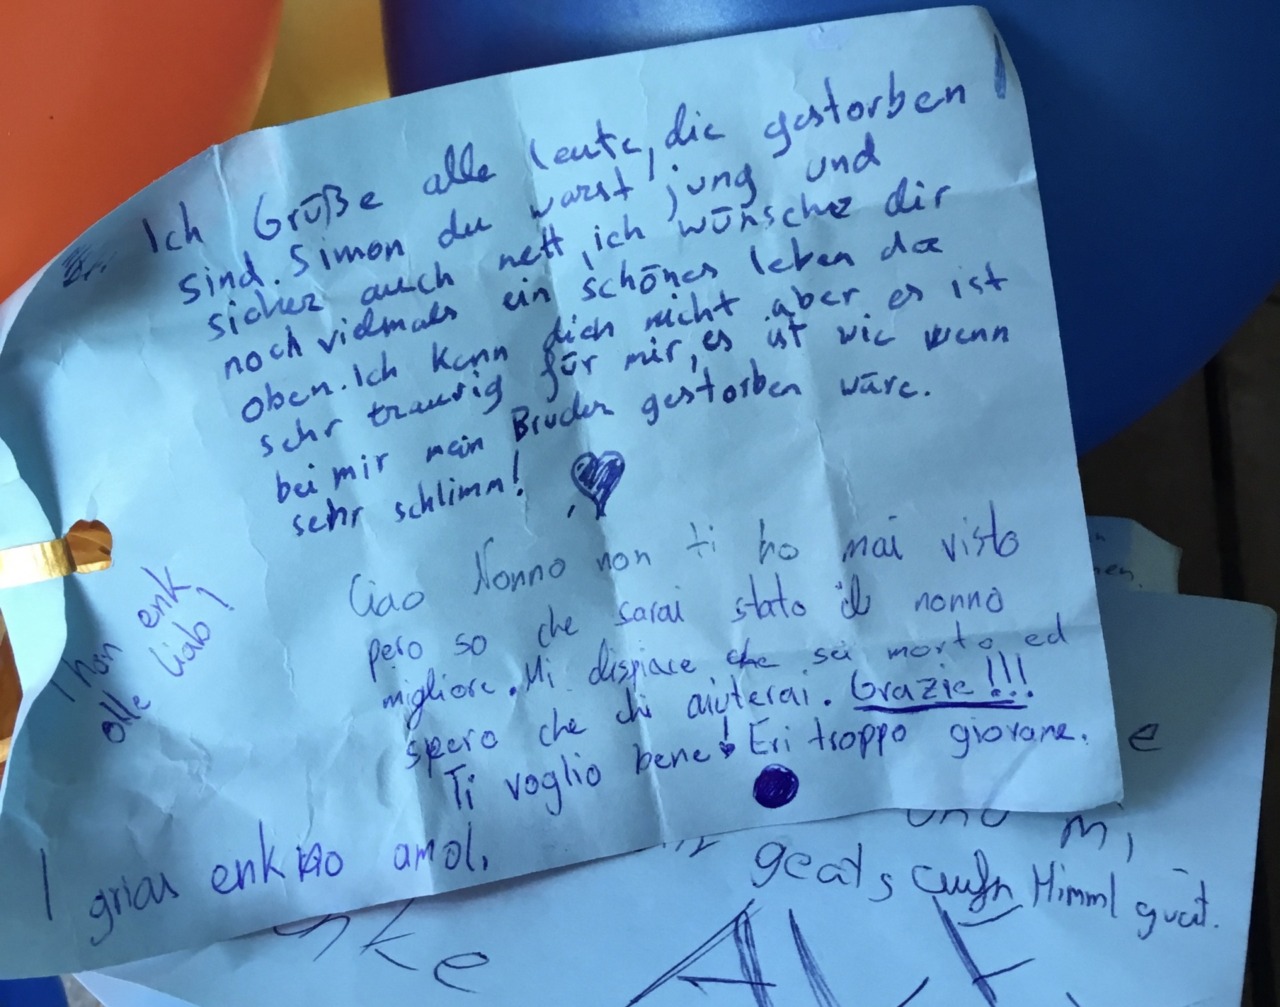 Ich Grüße alle leute, die gestorben
sind. Simon du warst jung und
sicher auch nett, ich wünsche dir
noch vielmals ein schönes leben da
oben. Ich kenn dich nicht aber es ist
sehr traurig für mir, es ist wie wenn
bei mir mein Bruder gestorben wäre.
sehr schlimm!
Ciao Nonno non ti ho mai visto
pero so che sarai stato il nonno
migliore. Mi dispiace che sei morto ed
spero che chi aiuterai. Grazie!!!
Ti voglio bene! Eri troppo giovane.
I hon enk
olle liab!
I grias enk no amol.
geats aufn Himml guat.